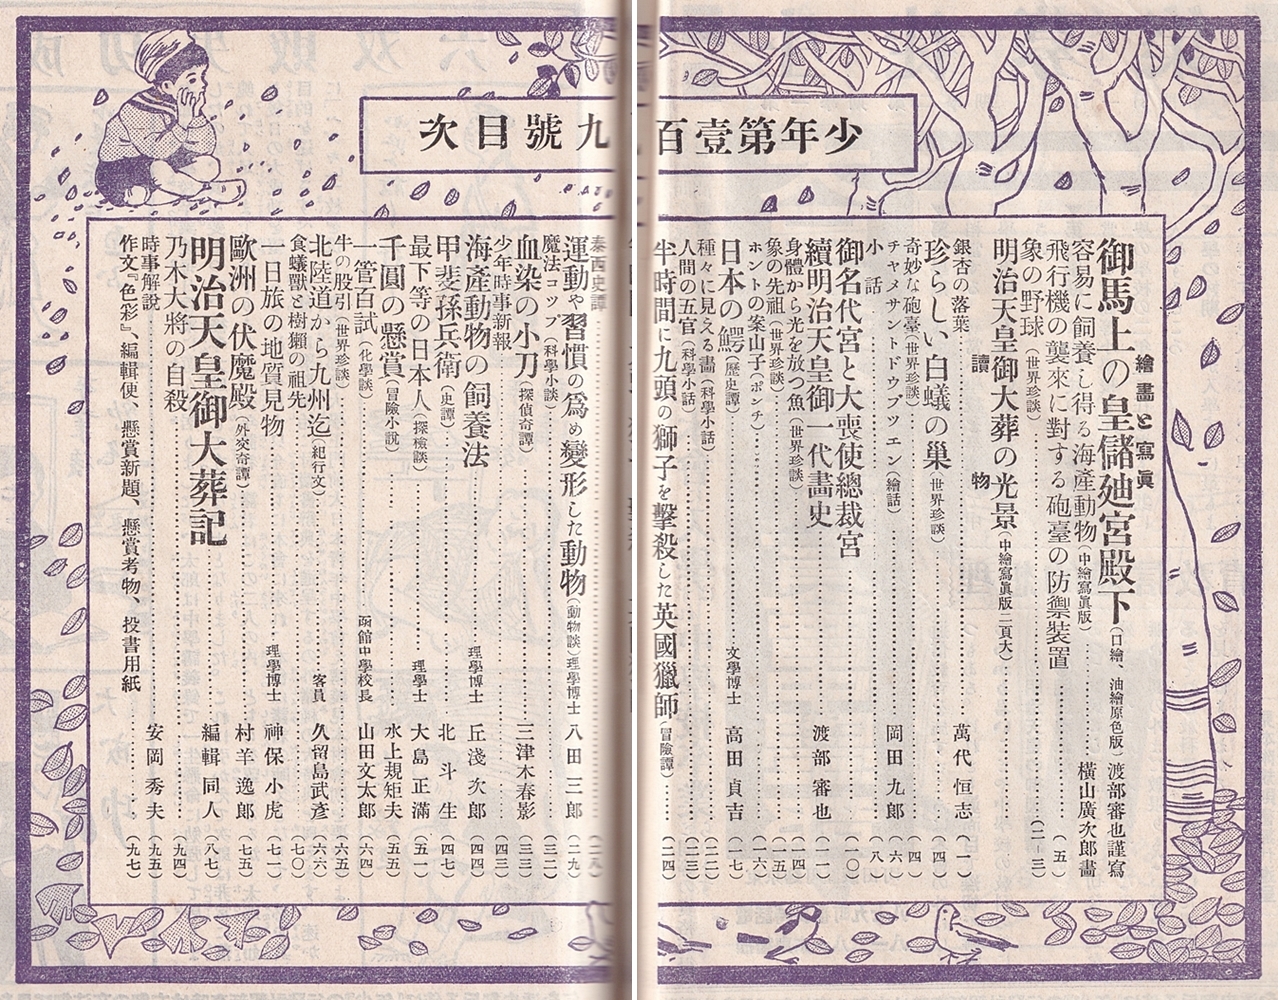 少年第壹百九號目次
繪畫と寫眞
御馬上の皇儲廸宮殿下(口繪、油繪原色版)渡部審也謹寫
容易に飼養し得る海產動物(中繪寫眞版)橫山廣次郎畵
飛行機の襲來に對する砲臺の防禦裝置(五)
象の野球(世界珍談)(二―三)
明治天皇御大葬の光景(中繪寫眞版二頁大)
讀物
銀杏の落葉 萬代恒志(一)
珍らしい白蟻の巢(世界珍談)(四)
奇妙な砲臺(世界珍談)(四)
チャメサントドウブツエン(繪話)岡田九郎(六)
小話(八)
御名代宮と大喪使總裁宮(一〇)
續明治天皇御一代畵史 渡部審也(一一)
身體から光を放つ魚(世界珍談)(一四)
象の先祖(世界珍談)(一五)
ホントの案山子(ポンチ)(一六)
日本の鰐(歷史譚)文學博士 高田貞吉(一七)
種々に見える畵(科學小話)(二二)
人間の五官(科學小話)(二三)
半時間に九頭の獅子を擊殺した英國獵師(冒險譚)(二四)
泰西史譚(二八)
運動や習慣の爲め變形した動物(動物談)理學博士 八田三郎(二九)
魔法コップ(科學小話)(三二)
血染の小刀(探偵奇譚)三津木春影(三三)
少年時事新報(四三)
海產動物の飼養法 理學博士 丘淺次郎(四四)
甲斐孫兵衛(史譚)北斗生(四七)
最下等の日本人(探檢談)理學士 大島正滿(五一)
千圓の懸賞(冒險小說)水上規矩夫(五五)
一管百試(化學談)函館中學校長 山田文太郎(六四)
牛の股引(世界珍談)(六五)
北陸道から九州迄(紀行文)客員 久留島武彥(六六)
食蟻獸と樹獺の祖先(七〇)
一日旅の地質見物 理學博士 神保小虎(七一)
歐洲の伏魔殿(外交奇譚)村羊逸郎(七五)
明治天皇御大葬記 編輯同人(八七)
乃木大將の自殺(九四)
時事解說 安岡秀夫(九五)
作文『色彩』、編輯便、懸賞新題、懸賞考物、投書用紙(九七)